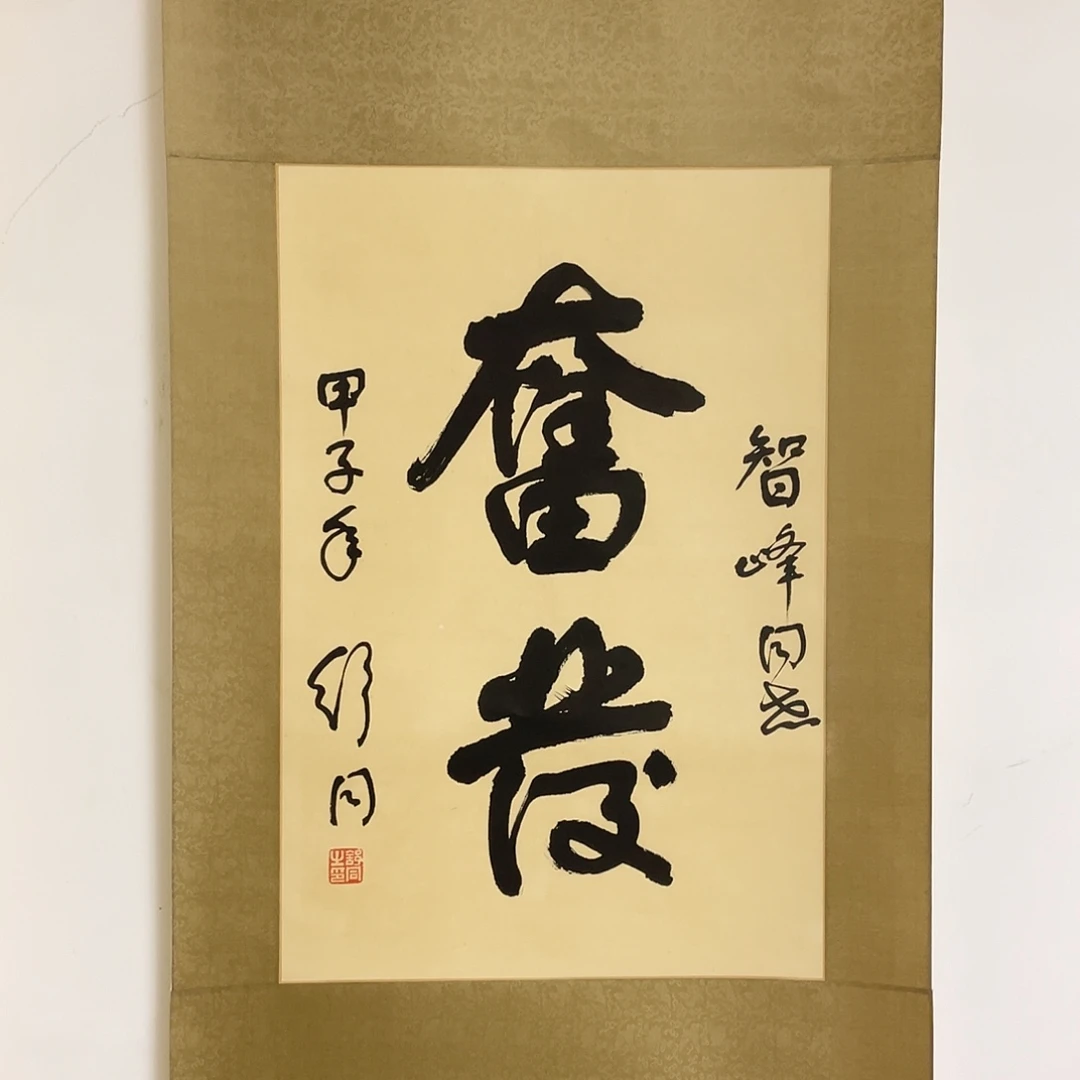 智峰同志
奮發
甲子年 舒同
舒同之印